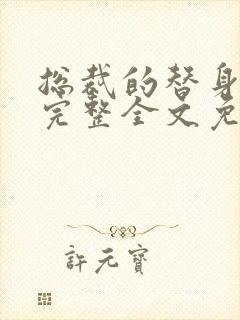 总裁的替身
完整全文免
許元寶